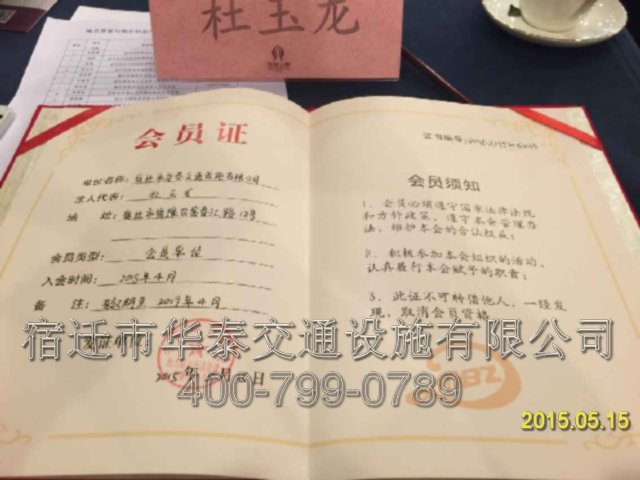 杜玉龙
会员证
单位名称：宿迁市华泰交通设施有限公司
法人代表：杜玉龙
地 址：宿迁市宿豫
会员类型：会员单位
入会时间：2015年4月
备 注：有效期至2019年4月
2015年 月 日
证书编号：
会员须知
1、会员必须遵守国家法律法规
和方针政策，遵守本会管理办
法，维护本会的合法权益；
2、积极参加本会组织的活动，
认真履行本会赋予的职责；
3、此证不可转借他人，一经发
现，取消会员资格
宿迁市华泰交通设施有限公司
400-799-0789
2015.05.15